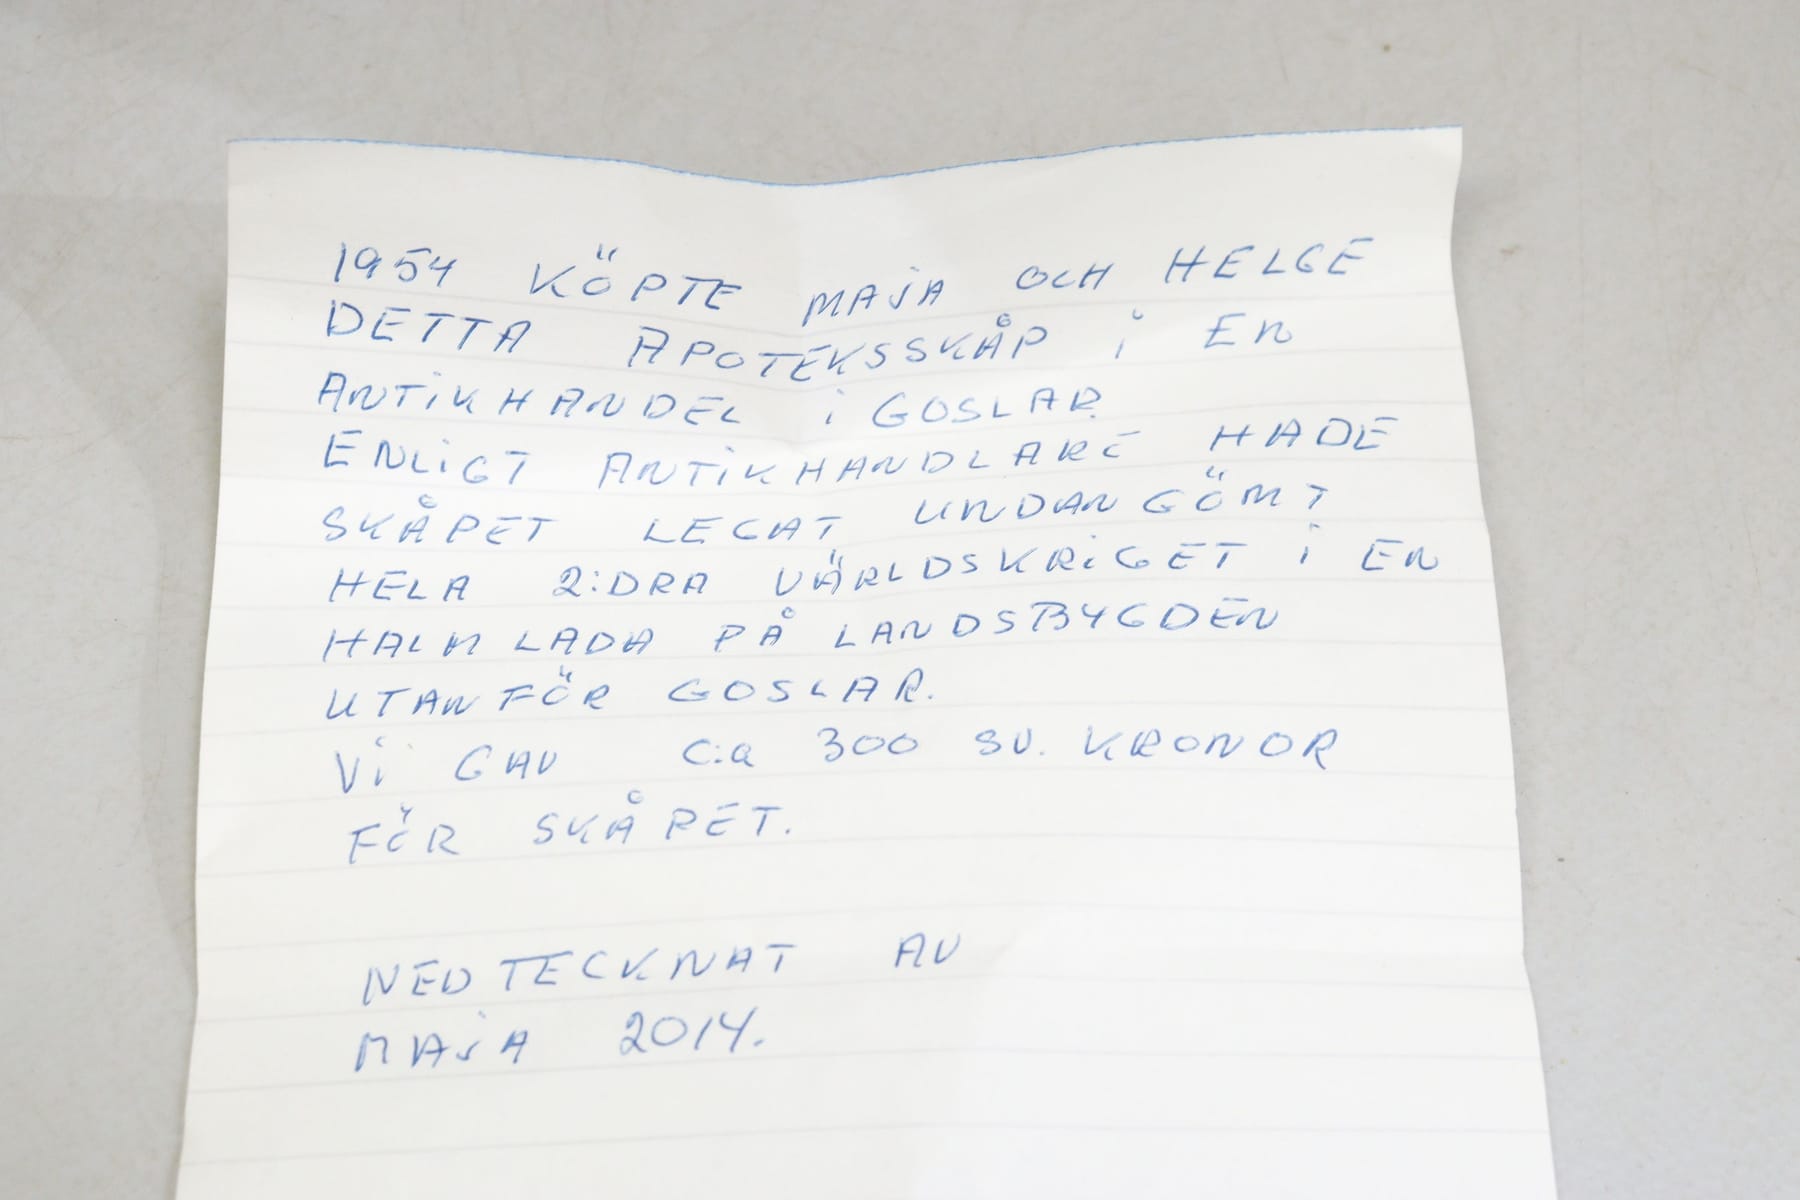 1954 KÖPTE MAJA OCH HELGE
DETTA APOTEKSSKÅP i EN
ANTiKHANDEL i GOSLAR
ENLiGT ANTiKHANDLARE HADE
SKÅPET LEGAT UNDANGÖMT
HELA 2:DRA VÄRLDSKRiGET i EN
HALMLADA PÅ LANDSBYGDEN
UTANFÖR GOSLAR.
Vi GAV C:a 300 SV. KRONOR
FÖR SKÅPET.
NEDTECKNAT AV
MAJA 2014.